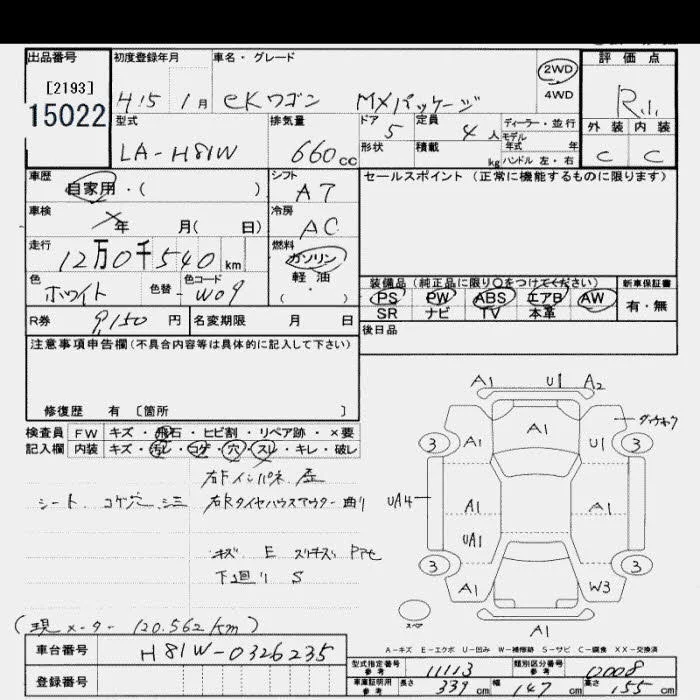 出品番号 初度登録年月 車名・グレード 評価点
[2193]
15022
H15 1月 eKワゴン MXパッケージ 2WD R.1.
4WD
型式 排気量 ドア 定員 ディーラー・並行 外装 内装
モデル
LA-H81W 660cc 5 4人 年式 年 C C
形状 積載 kg ハンドル 左・右
車歴 シフト セールスポイント(正常に機能するものに限ります)
自家用・( ) AT
車検 冷房
年 月( 日) AC
走行 燃料
12万0千540km ガソリン
軽油
( ・ )
色 色替 色コード 装備品(純正品に限り○をつけてください) 新車保証書
ホワイト - W09 PS PW ABS エアB AW 有・無
SR ナビ TV 本革
R券 9,150円 名変期限 月 日 後日品
注意事項申告欄(不具合内容等は具体的に記入して下さい)
修復歴 有 〔箇所 〕
検査員 FW キズ・飛石・ヒビ割・リペア跡・×要
記入欄 内装 キズ・汚レ・コゲ・穴・スレ・キレ・破レ
右Fインパネ 歪
シート、コゲ穴、シミ 右Rタイヤハウスアウター曲り
キズ E スリキズ
下廻り S
(現メーター 120.562km)
A1 U1 A2
A1
3 A1 U1 3
UA4 A1 A1
UA1
3 A1 W3 3
スペア
A1
A-キズ E-エクボ U-凹み W-補修跡 S-サビ C-腐食 XX-交換済
車台番号 H81W-0326235
登録番号
型式指定番号 参考 11113 類別区分番号 参考 0008
車庫証明用 参考 長さ 339cm 幅 147cm 高さ 55cm